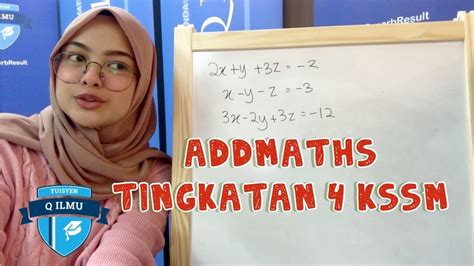 TUISYEN
Q ILMU
erbResult
2x+y+3z=-2
x-y-z=-3
3x-2y+3z=-12
ADDMATHS
TINGKATAN 4 KSSM
TUISYEN
Q ILMU